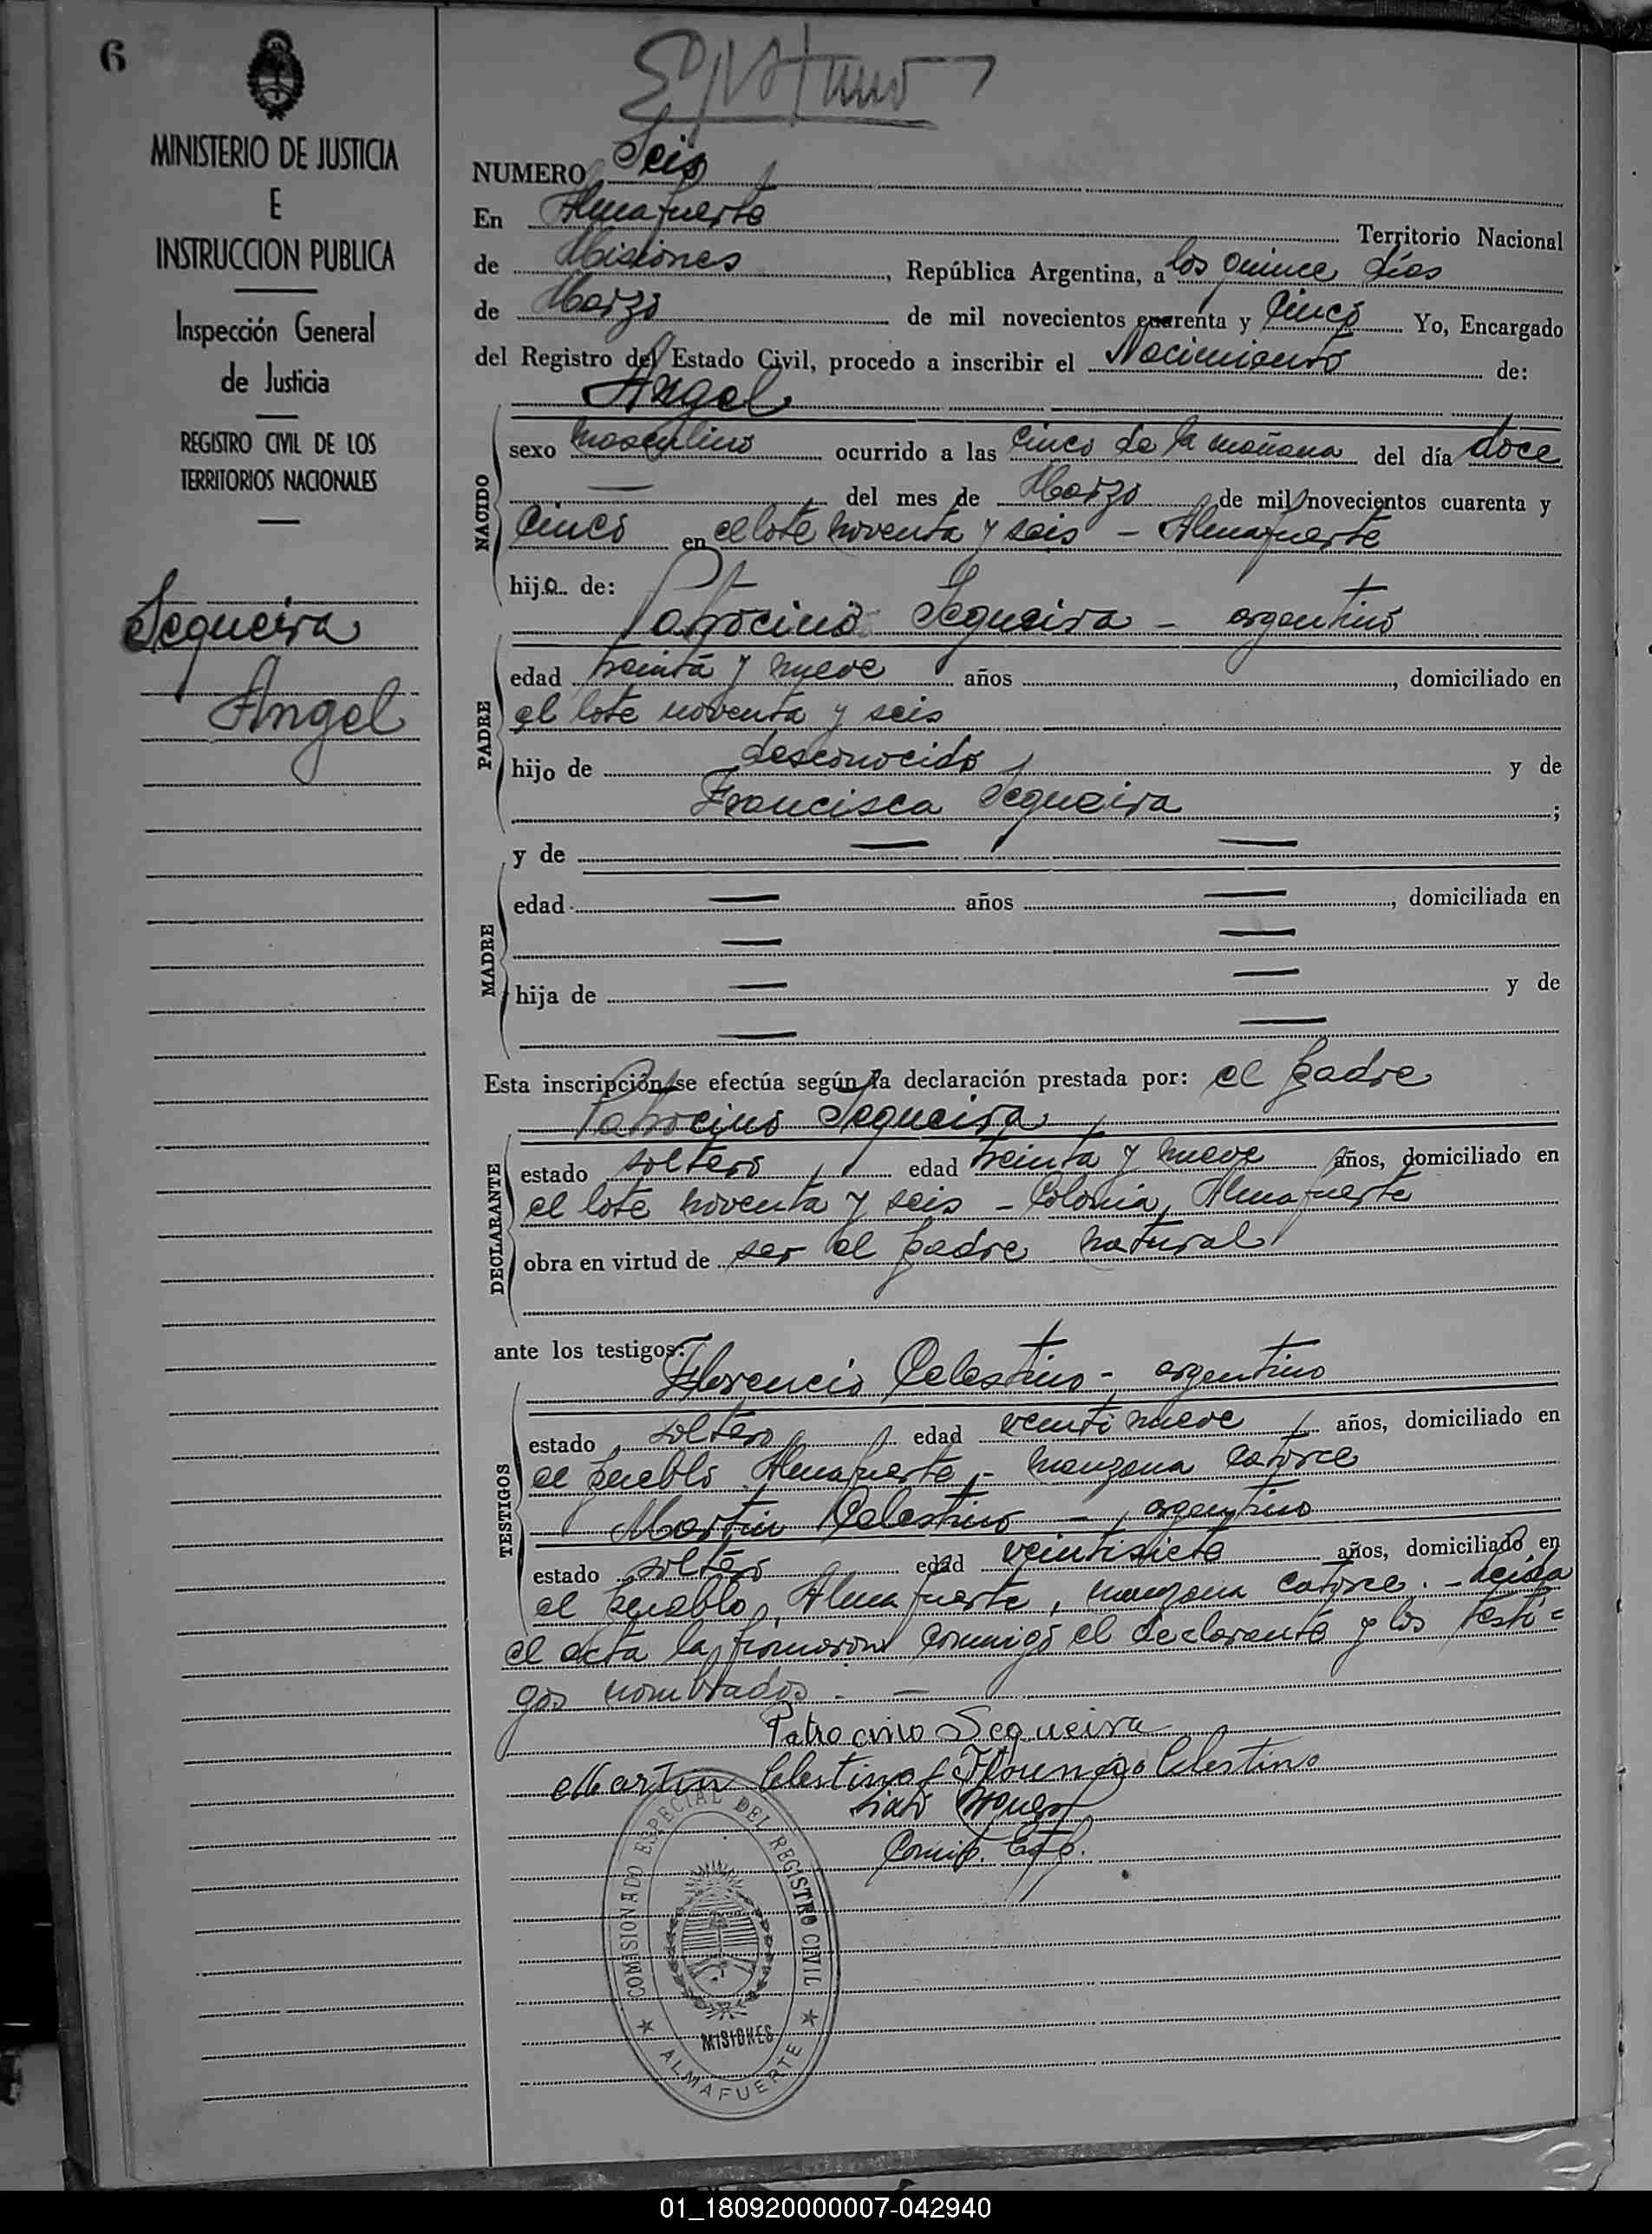 6
MINISTERIO DE JUSTICIA
E
INSTRUCCION PUBLICA
Inspección General
de Justicia
REGISTRO CIVIL DE LOS
TERRITORIOS NACIONALES
Sequeira
Angel
NUMERO Seis
En Almafuerte Territorio Nacional
de Misiones, República Argentina, a los quince días
de Marzo de mil novecientos cuarenta y cinco Yo, Encargado
del Registro del Estado Civil, procedo a inscribir el Nacimiento de:
Angel
NACIDO
sexo masculino ocurrido a las cinco de la mañana del día doce
— del mes de Marzo de mil novecientos cuarenta y
cinco en el lote noventa y seis - Almafuerte
hijo de:
Patrocinio Sequeira - argentino
PADRE
edad treinta y nueve años, domiciliado en
el lote noventa y seis
hijo de desconocido y de
Francisca Sequeira;
y de — —
MADRE
edad — años —, domiciliada en
— —
hija de — — y de
— —
Esta inscripción se efectúa según la declaración prestada por: el padre
Patrocinio Sequeira
DECLARANTE
estado soltero edad treinta y nueve años, domiciliado en
el lote noventa y seis - Colonia Almafuerte
obra en virtud de ser el padre natural
ante los testigos:
Florencio Celestino - argentino
TESTIGOS
estado soltero edad veinti nueve años, domiciliado en
el pueblo Almafuerte - manzana catorce
Martin Celestino - argentino
estado soltero edad veintisiete años, domiciliado en
el pueblo Almafuerte, manzana catorce. - Leida
el acta la firmaron conmigo el declarante y los testi=
gos nombrados. —
Patrocinio Sequeira
Martin Celestino Florencio Celestino
COMISIONADO ESPECIAL DEL REGISTRO CIVIL
MISIONES
ALMAFUERTE
01_180920000007-042940